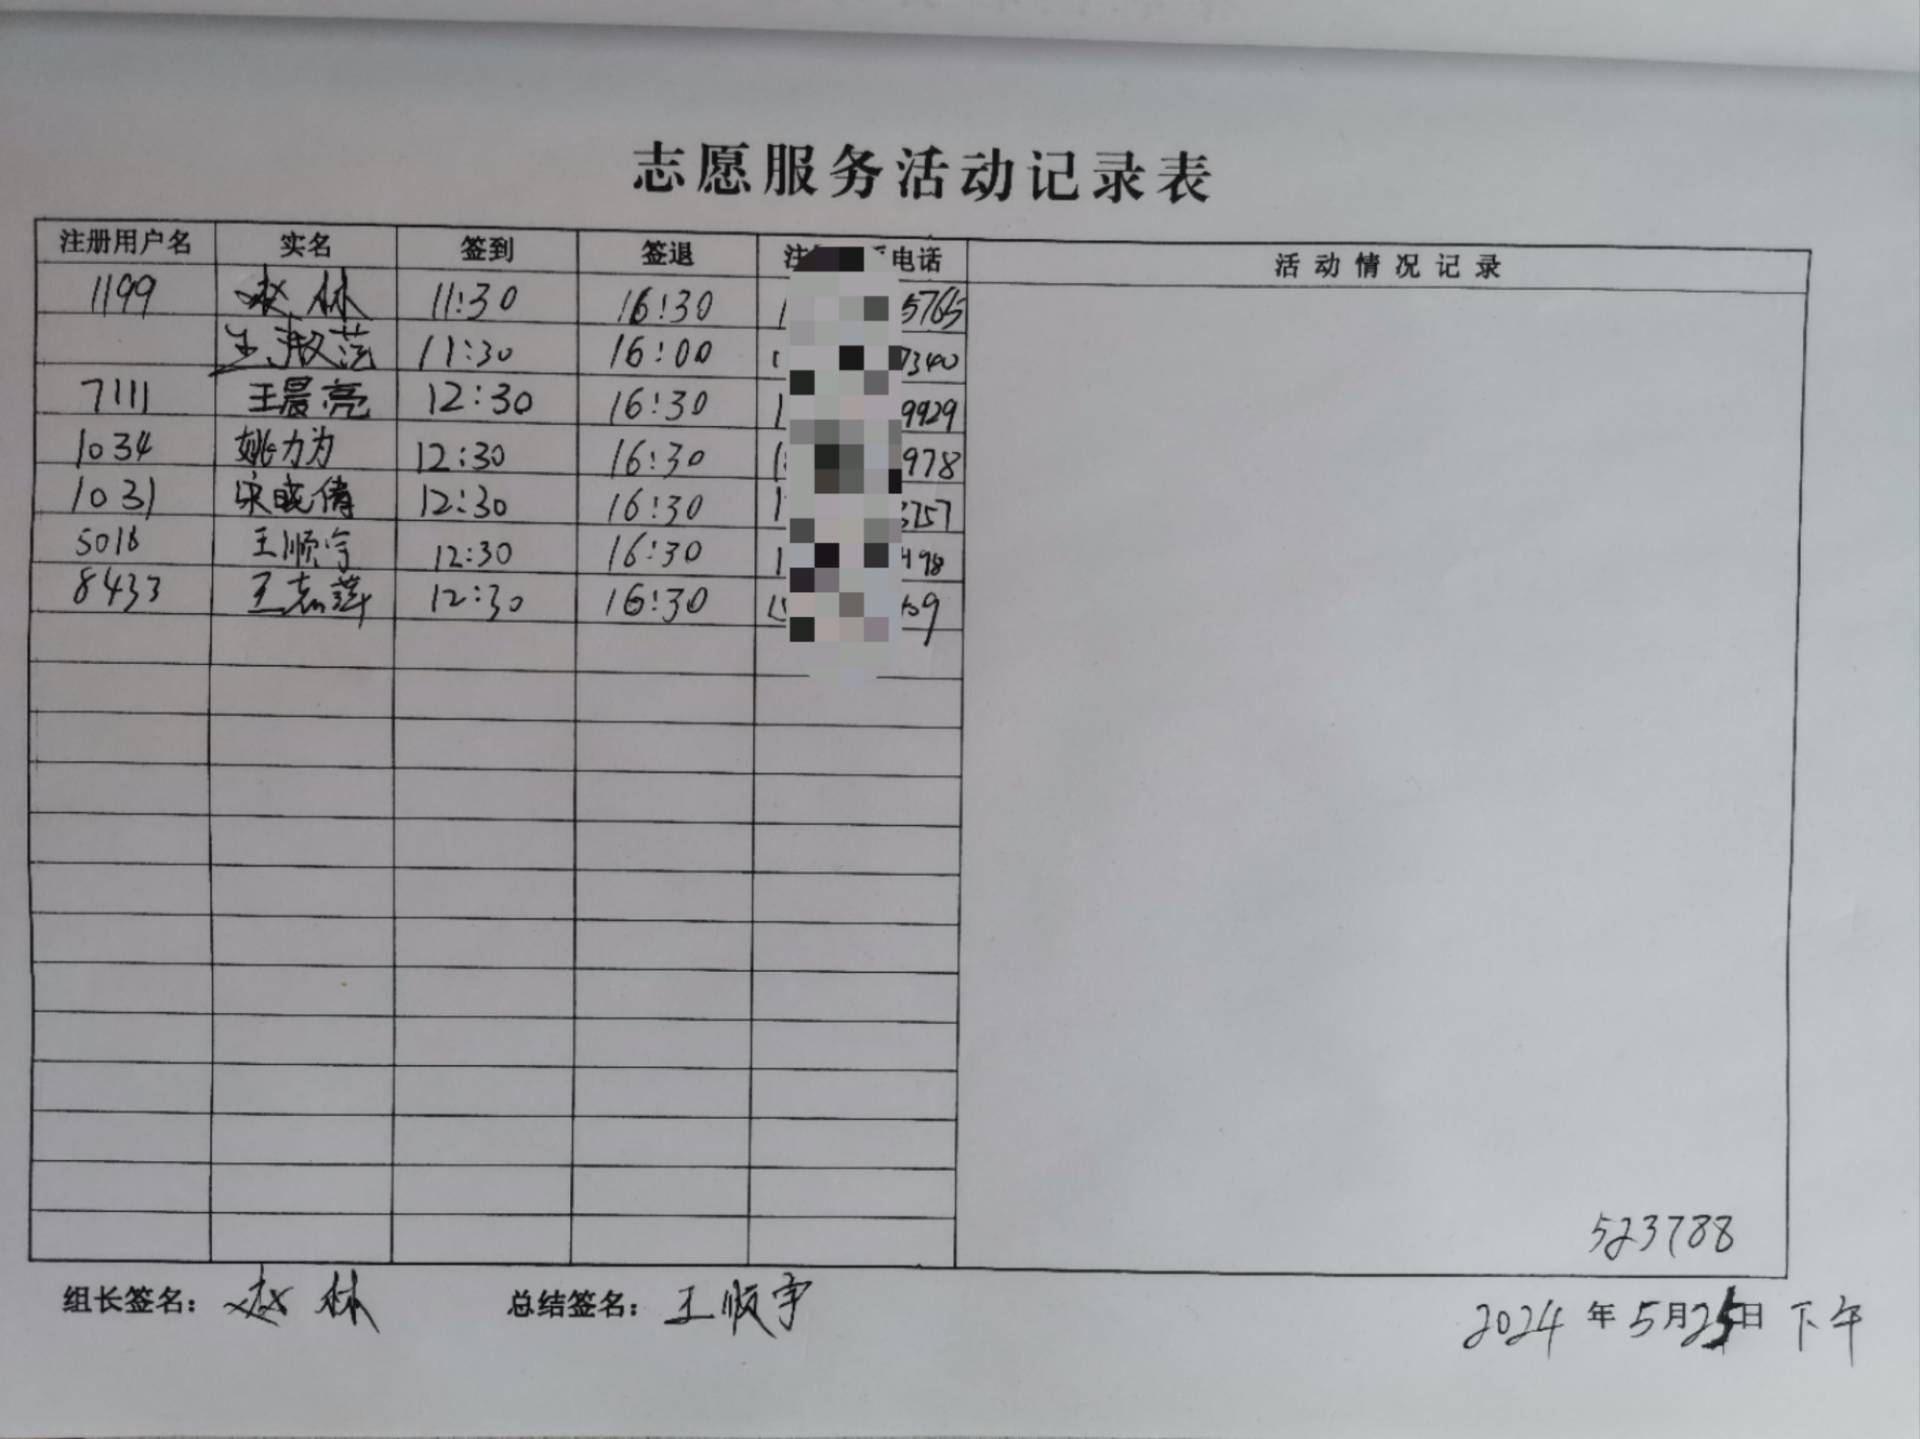 志愿服务活动记录表
注册用户名 实名 签到 签退 电话 活动情况记录
1199 赵林 11:30 16:30 5765
王淑萍 11:30 16:00 7340
7111 王晨亮 12:30 16:30 9929
1034 姚力为 12:30 16:30 978
1031 宋晓倩 12:30 16:30 3757
5016 王顺宇 12:30 16:30 498
8433 王志萍 12:30 16:30 09
523788
组长签名：赵林 总结签名：王顺宇 2024年5月25日下午